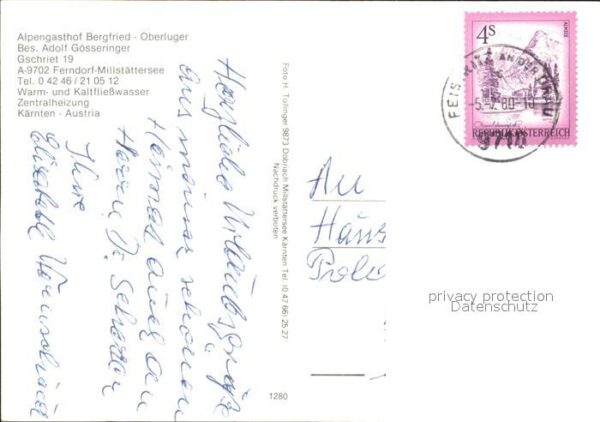 Alpengasthof Bergfried - Oberluger
Bes. Adolf Gösseringer
Gschriet 19
A-9702 Ferndorf-Millstättersee
Tel. 0 42 46 / 21 05 12
Warm- und Kaltfließwasser
Zentralheizung
Kärnten - Austria
Herzliche Urlaubsgrüße
aus meiner schönen
Heimat auch an
Herrn Dr.
Ihre
Elisabeth
Foto H. Tollinger 9873 Döbriach Millstättersee Kärnten Tel. (0 47 66) 25 27
Nachdruck verboten
1280
4s
ALMSEE
REPUBLIK ÖSTERREICH
FEISTRITZ AN DER DRAU
80-10
9710
An
Haus
privacy protection
Datenschutz